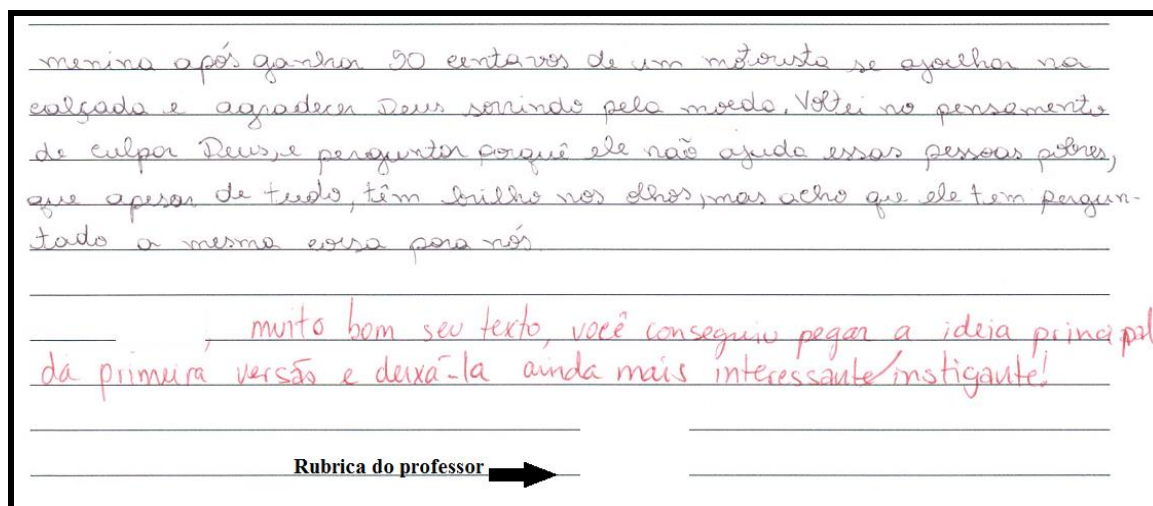 menina após ganhar 90 centavos de um motorista se ajoelhar na
calçada e agradecer Deus sorrindo pela moeda. Voltei no pensamento
de culpar Deus, e perguntar porquê ele não ajuda essas pessoas pobres,
que apesar de tudo, têm brilho nos olhos, mas acho que ele tem pergun-
tado a mesma coisa para nós.
, muito bom seu texto, você conseguiu pegar a ideia principal
da primeira versão e deixá-la ainda mais interessante/instigante!
Rubrica do professor